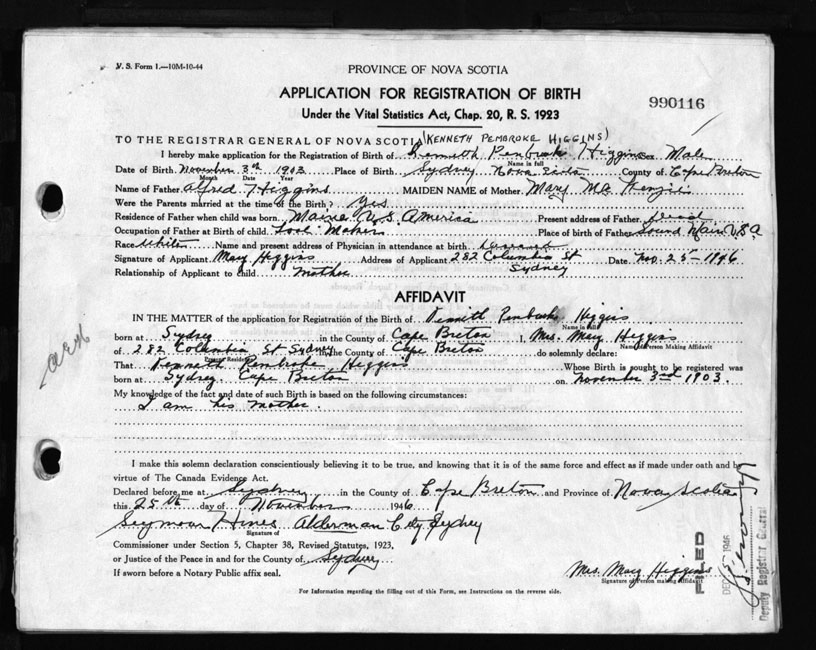 V. S. Form 1.—10M-10-44
PROVINCE OF NOVA SCOTIA
APPLICATION FOR REGISTRATION OF BIRTH
990116
Under the Vital Statistics Act, Chap. 20, R. S. 1923
TO THE REGISTRAR GENERAL OF NOVA SCOTIA (KENNETH PEMBROKE HIGGINS)
I hereby make application for the Registration of Birth of Kenneth Penbroke Higgins Sex Male
Name in full
Date of Birth November 3rd 1903 Place of Birth Sydney Nova Scotia County of Cape Breton
Month Date Year
Name of Father Alfred Higgins MAIDEN NAME of Mother Mary Mc Kenzie
Were the Parents married at the time of the Birth? Yes
Residence of Father when child was born Maine U.S. America Present address of Father dead
Occupation of Father at Birth of child Maker Place of birth of Father Sound Main U.S.A
Race White Name and present address of Physician in attendance at birth deceased
Signature of Applicant Mary Higgins Address of Applicant 282 Columbia St Sydney Date Nov. 25 1946
Relationship of Applicant to child mother
AFFIDAVIT
IN THE MATTER of the application for Registration of the Birth of Kenneth Penbroke Higgins
Name in full
born at Sydney in the County of Cape Breton I, Mrs. Mary Higgins
Name of Person Making Affidavit
of 282 Columbia St Sydney in the County of Cape Breton do solemnly declare:
That Kenneth Penbroke Higgins Whose Birth is sought to be registered was
born at Sydney Cape Breton on November 3rd 1903.
My knowledge of the fact and date of such Birth is based on the following circumstances:
I am his mother.
I make this solemn declaration conscientiously believing it to be true, and knowing that it is of the same force and effect as if made under oath and by
virtue of The Canada Evidence Act.
Declared before me at Sydney in the County of Cape Breton and Province of Nova Scotia
this 25th day of November 1946
Seymour Hines Alderman City Sydney
Signature of
Commissioner under Section 5, Chapter 38, Revised Statutes, 1923,
or Justice of the Peace in and for the County of Sydney
If sworn before a Notary Public affix seal.
Mrs. Mary Higgins
Signature of Person making Affidavit
For Information regarding the filling out of this Form, see Instructions on the reverse side.
FILED
DEC 5 1946
Deputy Registrar General